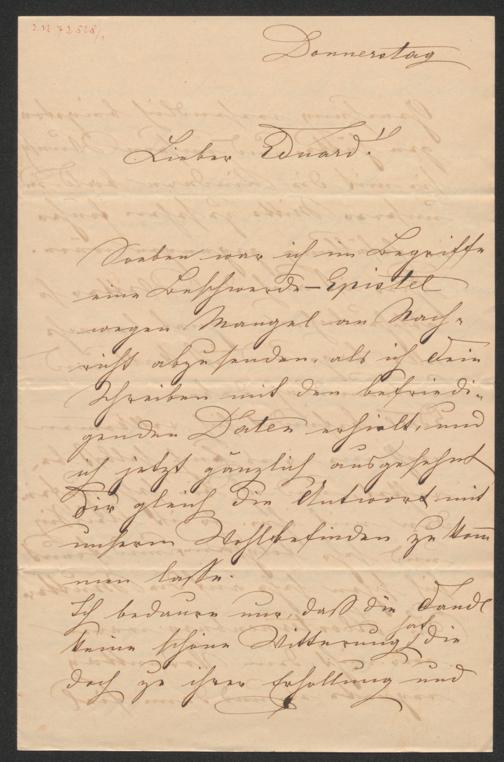 Donnerstag
Lieber Eduard!
Soeben war ich im Begriffe
eine Beschwerde-Epistel
wegen Mangel an Nach-
richt abzusenden, als ich Dein
Schreiben mit den befriedi-
genden Daten erhielt, und
ich jetzt gänzlich ausgesöhnt
Dir gleich die Antwort mit
unserm Wohlbefinden zu kom
men lasse.
Ich bedaure nur, daß die
keine schöne Witterung hat, die
doch zu ihrer Erhollung und